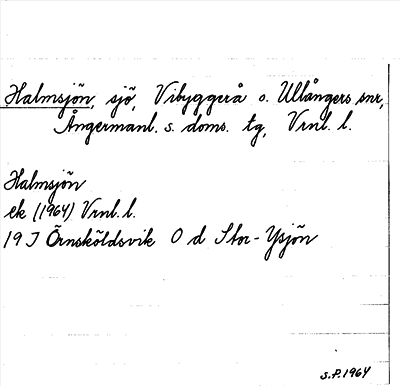 Halmsjön, sjö, Vibyggerå o. Ullångers snr,
Ångermanl. s. doms. tg, Vrnl. l.
Halmsjön
ek (1964) Vrnl. l.
19 J Örnsköldsvik O d Stor-Ysjön
S.P. 1964